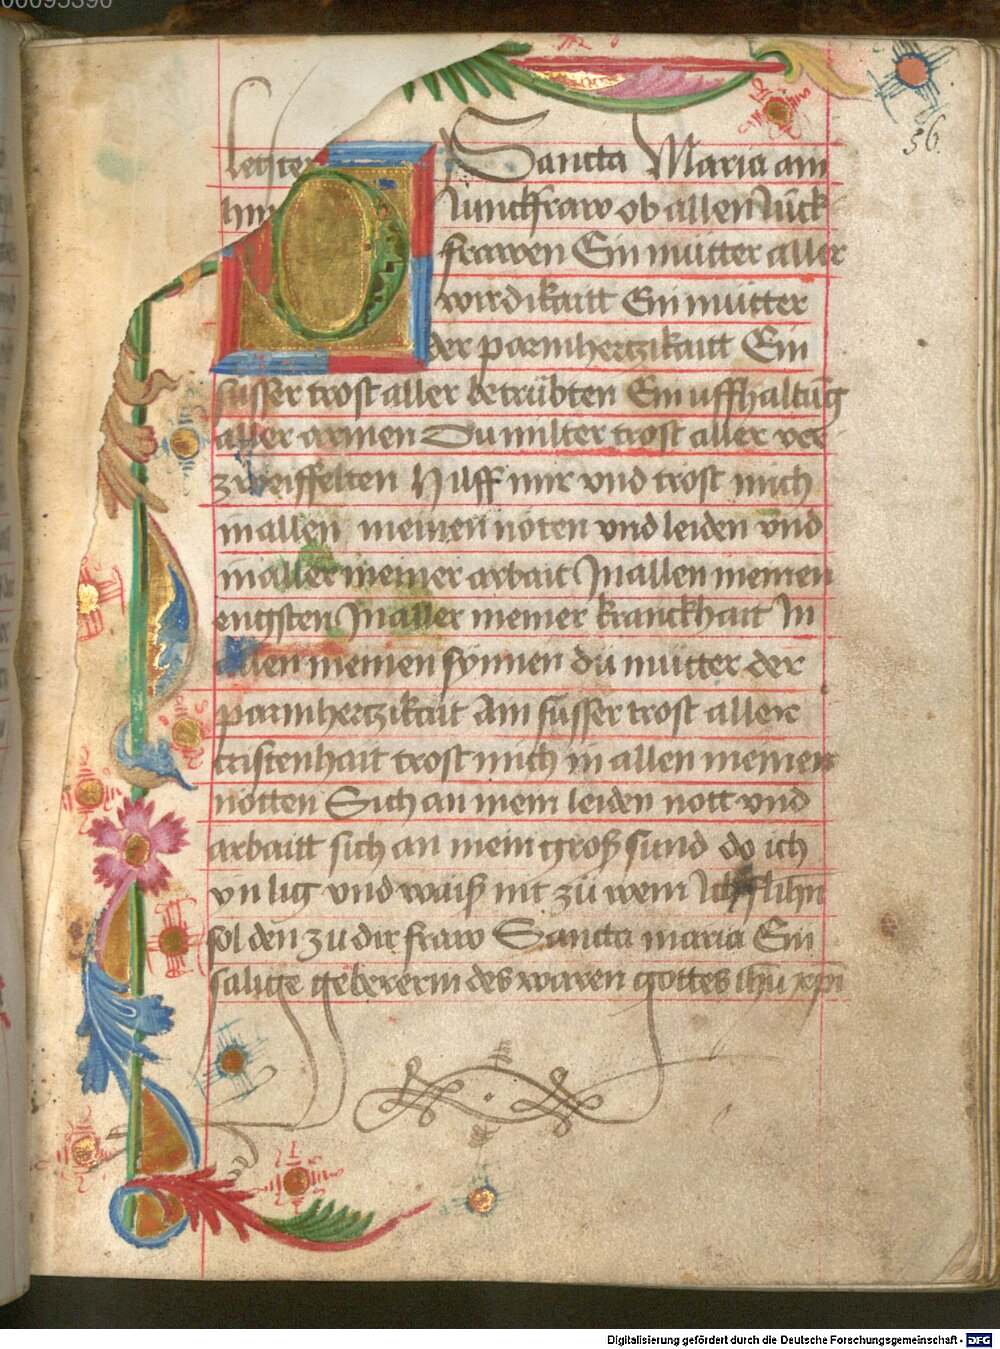 00095390
56.
O Sancta Maria ain
Junckfraw ob allen Junck
frawen Ein mutter aller
wirdikaitt Ein mutter
der parmhertzikaitt Ein
susser trost aller betrübten Ein uffhaltūg
aller armen Du milter trost aller ver
zweiffelten Hilff mir vnd trost mich
in allen meinen nöten vnd leiden vnd
in aller meiner arbait In allen meinen
engsten In aller meiner kranckhait In
allen meinen synnen dü mutter der
parmhertzikait Ain susser trost aller
cristenhait trost mich in allen meinen
nötten Sich an mein leiden nott vnd
arbaitt sich an mein groß sund do ich
yn lig vnd waiß nit zü wem Ich flihn
sol den zu dir fraw Sancta maria Ein
salige gebererin des waren gottes ihū xpi
Digitalisierung gefördert durch die Deutsche Forschungsgemeinschaft - DFG